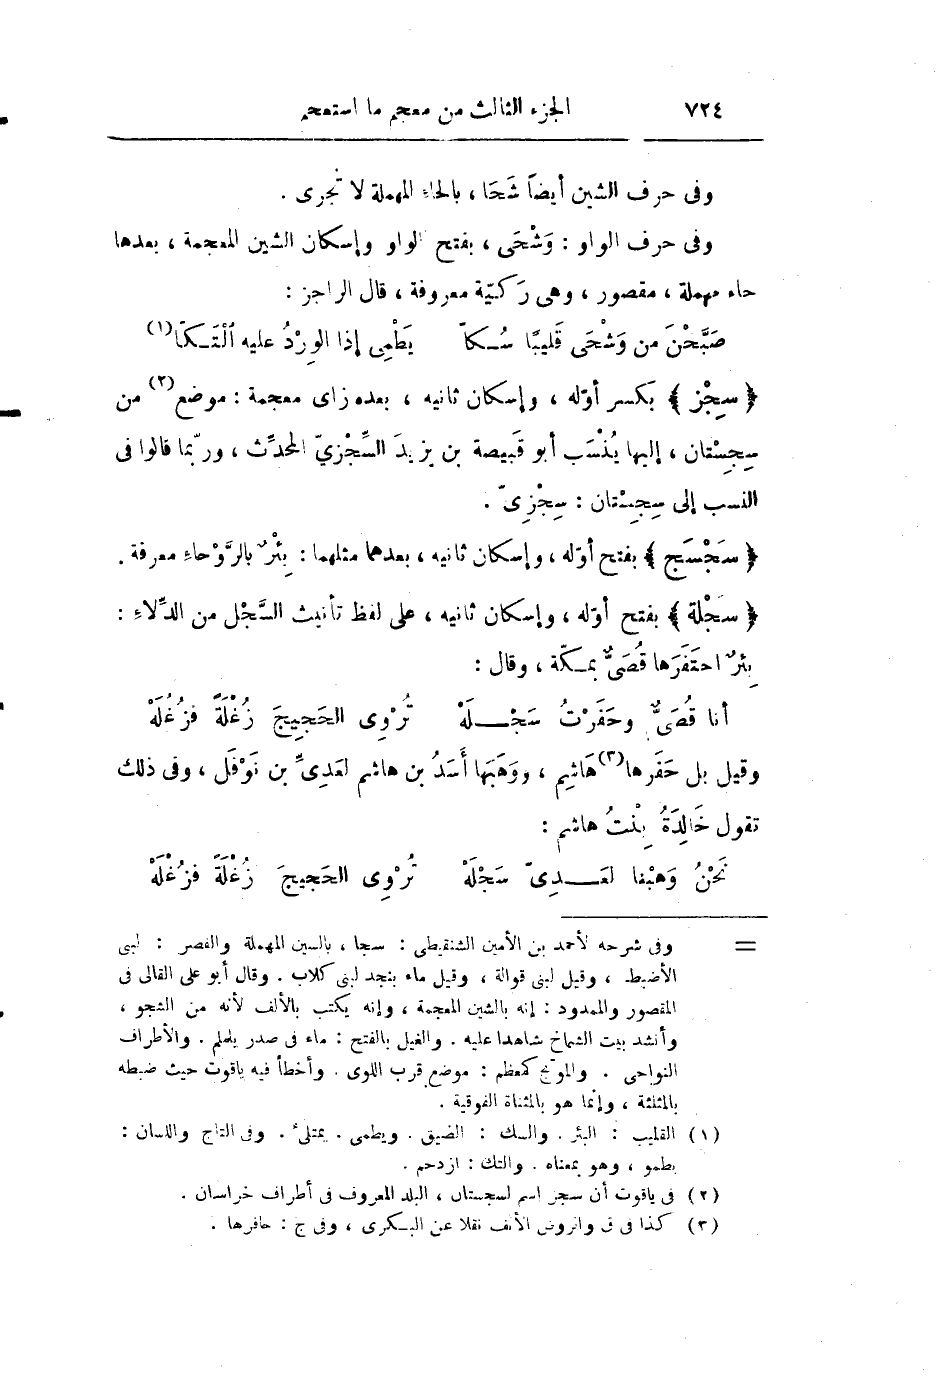 ٧٢٤
الجزء الثالث من معجم ما استعجم
وفى حرف الشين أيضاً شَحَا ، بالحاء المهملة لا تُجرى .
وفى حرف الواو : وَشْحَى ، بفتح الواو وإسكان الشين المعجمة ، بعدها
حاء مهملة ، مقصور ، وهى رَكيّة معروفة ، قال الراجز :
صَبَّحْنَ من وَشْحَى قَليبًا سُـكاّ يَطْمِى إذا الوِرْدُ عليه ٱلْتَـكاّ(١)
﴿ سِجْز ﴾ بكسر أوّله ، وإسكان ثانيه ، بعده زاى معجمة : موضع(٢) من
سِجِسْتان ، إليها يُنْسَب أبو قَبيصة بن يزيدَ السِّجْزيّ المحدِّث ، وربّما قالوا فى
النسب إلى سِجِسْتان : سِجْزِىّ .
﴿ سَجْسَج ﴾ بفتح أوّله ، وإسكان ثانيه ، بعدهما مثلهما : بِئْرٌ بالرَّوْحاءِ معرفة .
﴿ سَجْلة ﴾ بفتح أوّله ، وإسكان ثانيه ، على لفظ تأنيث السَّجْل من الدِّلاءِ :
بِئرٌ احتَفَرَها قُصَىٌّ بمـكّة ، وقال :
أنا قُصَىٌّ وحَفَرْتُ سَجْـــلَهْ تُرْوِى الحَجِيجَ زُغْلَةً فزُغْلَهْ
وقيل بل حَفَرها(٣) هَاشِم ، ووَهَبَها أَسَدُ بن هاشم لعَدِىِّ بن نَوْفَل ، وفى ذلك
تقول خَالِدَةُ بِنْتُ هاشم :
نَحْنُ وَهبْنا لعَـــدِىّ سَجْلَهْ تُرْوِى الحَجِيجَ زُغْلَةً فزُغْلَهْ
= وفى شرحه لأحمد بن الأمين الشنقيطى : سجا ، بالسين المهملة والقصر : لبنى
الأضبط ، وقيل لبنى قوالة ، وقيل ماء بنجد لبنى كلاب . وقال أبو على القالى فى
المقصور والممدود : إنه بالشين المعجمة ، وإنه يكتب بالألف لأنه من الشجو ،
وأنشد بيت الشماخ شاهدا عليه . والغيل بالفتح : ماء فى صدر يلملم . والأطراف
النواحى . والموتج كمعظم : موضع قرب اللوى . وأخطأ فيه ياقوت حيث ضبطه
بالمثلثة ، وإنما هو بالمثناة الفوقية .
(١) القليب : البئر . والسك : الضيق . ويطمى . يمتلئ . وفى التاج واللسان :
يطمو ، وهو بمعناه . والتك : ازدحم .
(٢) فى ياقوت أن سجز اسم لسجستان ، البلد المعروف فى أطراف خراسان .
(٣) كذا فى ق والروض الأنف نقلا عن البـكرى ، وفى ج : حافرها .